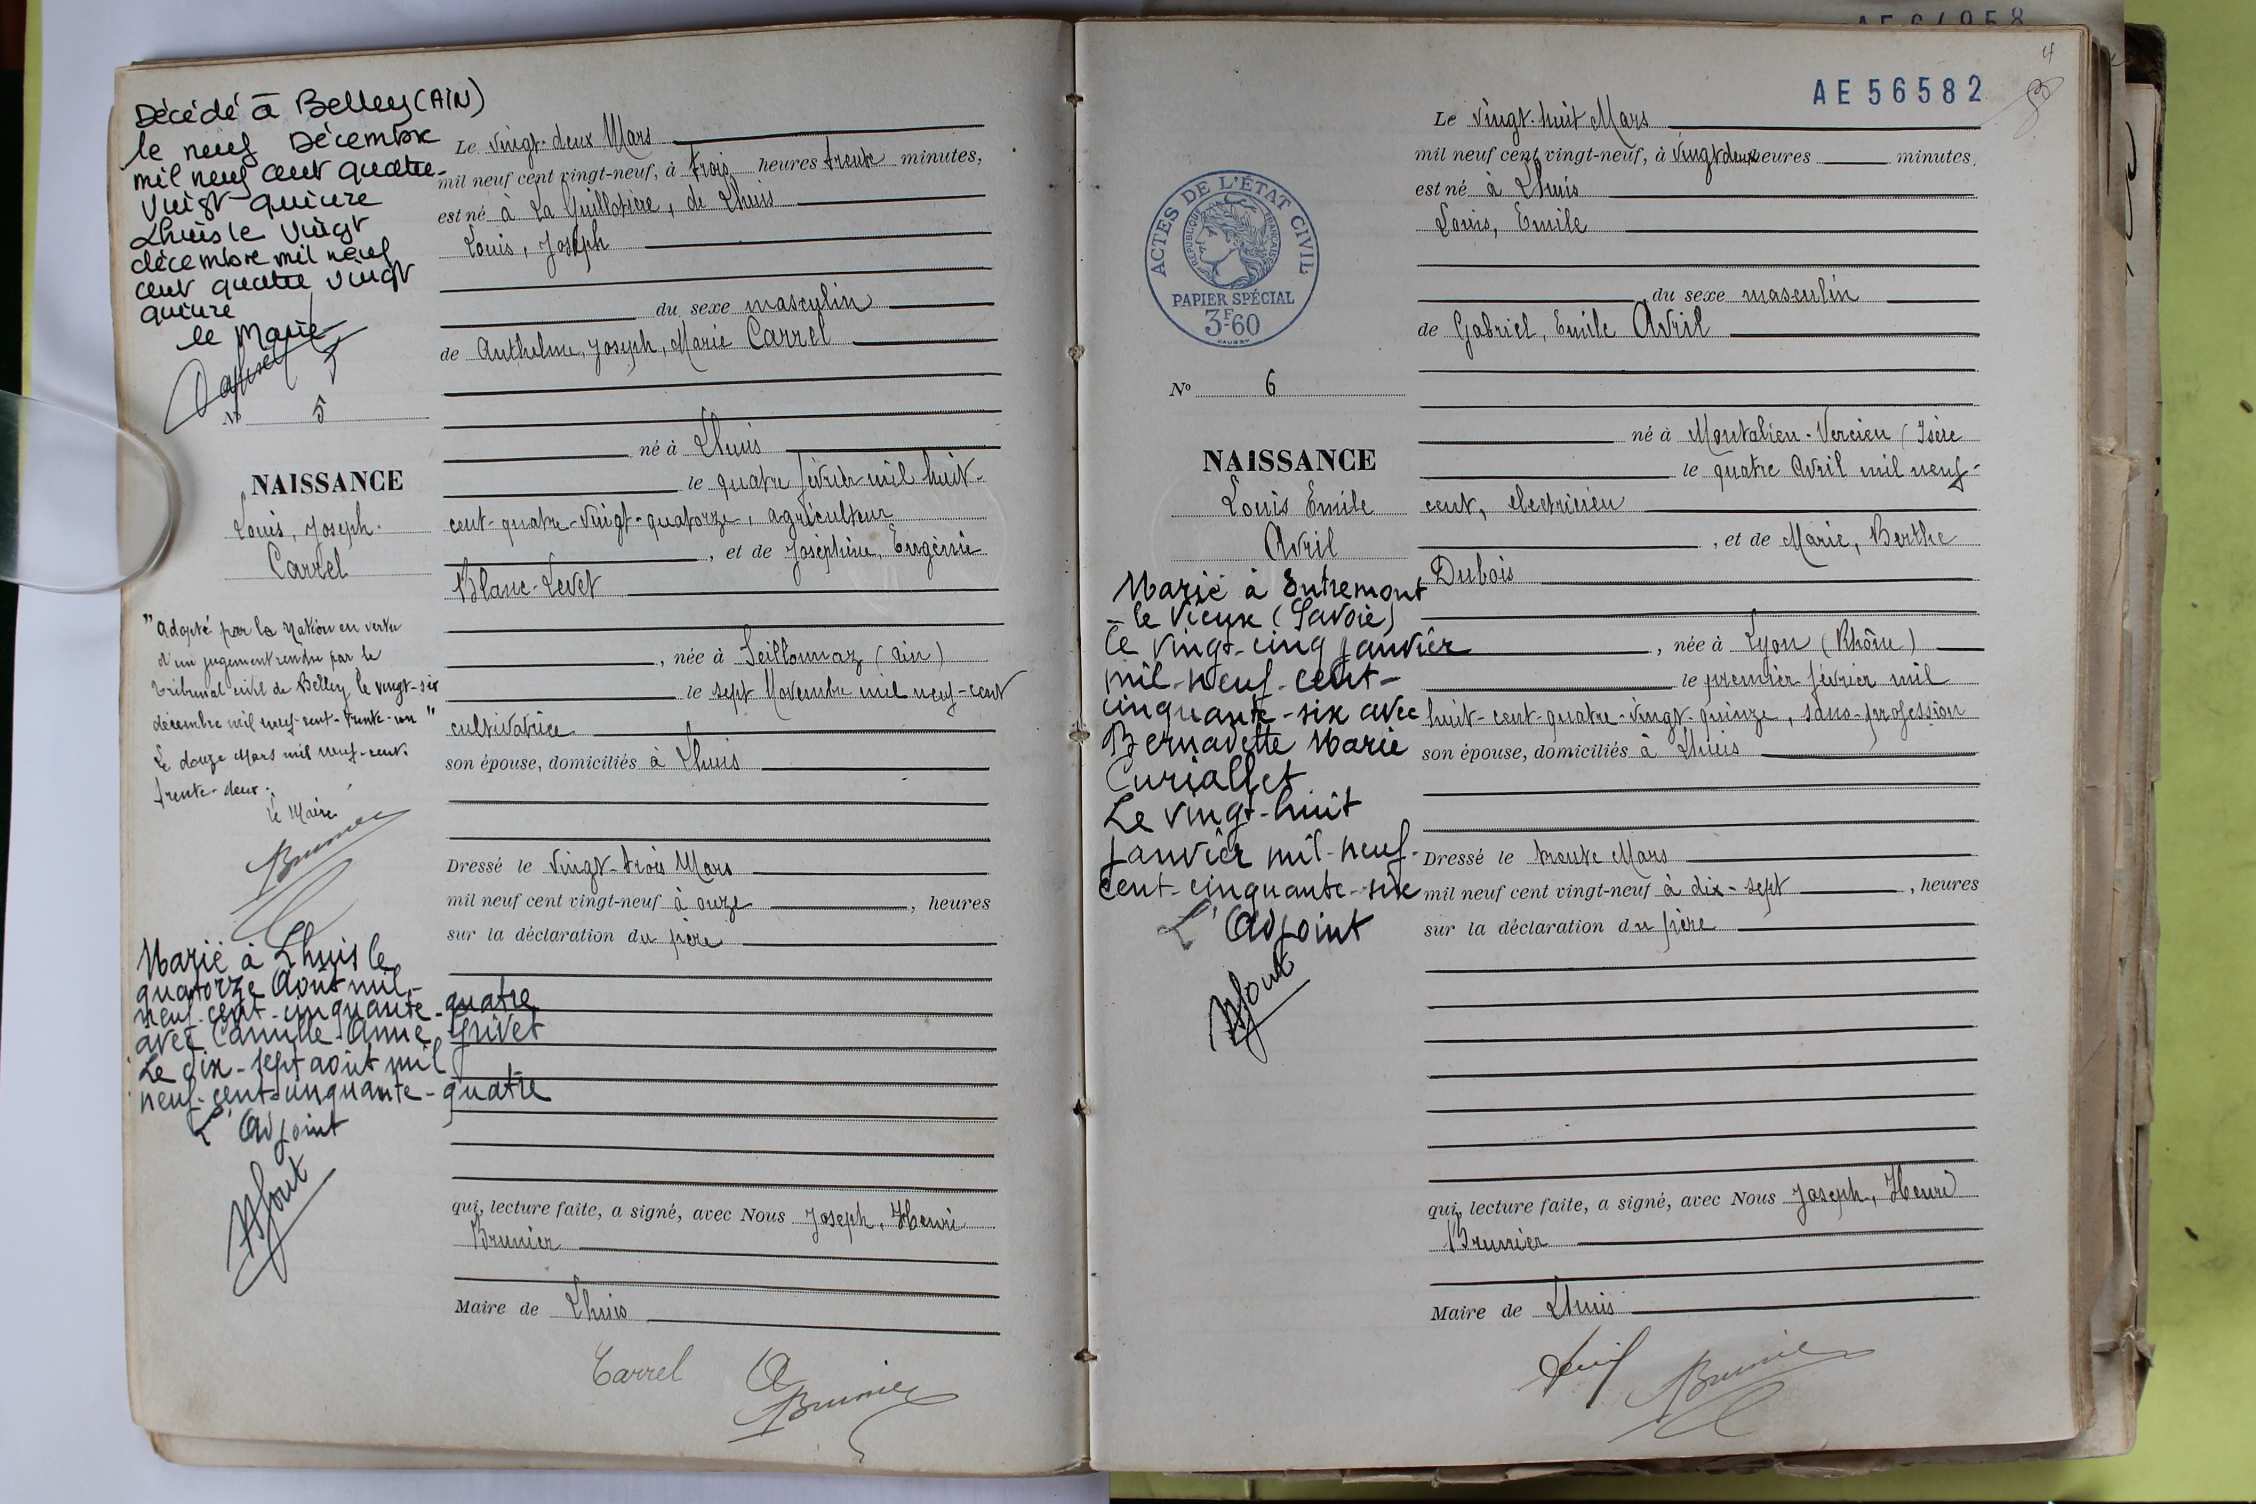 Décédé à Belley (AIN)
le neuf Décembre
mil neuf cent quatre-
vingt quinze
Lhuis le vingt
décembre mil neuf
cent quatre vingt
quinze
le Maire
N° 5
NAISSANCE
Louis, Joseph.
Carrel
"adopté par la Nation en vertu
d'un jugement rendu par le
tribunal civil de Belley le vingt-six
décembre mil neuf-cent-trente-un"
Le douze Mars mil neuf-cent.
trente-deux.
le Maire
Brunier
Marié à Lhuis le
quatorze Août mil-
neuf-cent-cinquante-quatre
avec Camille Anne Grivet
Le dix-sept août mil
neuf-cent-cinquante-quatre
L'Adjoint
Le vingt-deux Mars
mil neuf cent vingt-neuf, à trois heures trente minutes,
est né à La Guillotière, de Lhuis
Louis, Joseph
du sexe masculin
de Anthelme, Joseph, Marie Carrel
né à Lhuis
le quatre février mil huit-
cent-quatre-vingt-quatorze, agriculteur
, et de Joséphine, Eugénie
Blanc-Levet
, née à Seillonnaz (Ain)
le sept Novembre mil neuf-cent
cultivatrice
son épouse, domiciliés à Lhuis
Dressé le vingt-trois Mars
mil neuf cent vingt-neuf à onze, heures
sur la déclaration du père
qui, lecture faite, a signé, avec Nous Joseph, Henri
Brunier
Maire de Lhuis
Carrel
Brunier
4
AE 56582
ACTES DE L'ÉTAT CIVIL
RÉPUBLIQUE FRANÇAISE
PAPIER SPÉCIAL
3F-60
N° 6
NAISSANCE
Louis Emile
Avril
Marié à Entremont
-le Vieux (Savoie)
le vingt-cinq janvier
mil-neuf-cent-
cinquante-six avec
Bernadette Marie
Curiallet
Le vingt-huit
janvier mil-neuf-
cent-cinquante-six
L'Adjoint
Le vingt-huit Mars
mil neuf cent vingt-neuf, à vingt deux heures minutes,
est né à Lhuis
Louis, Emile
du sexe masculin
de Gabriel, Emile Avril
né à Montalieu-Vercieu (Isère
le quatre Avril mil neuf-
cent, electricien
, et de Marie, Berthe
Dubois
, née à Lyon (Rhône)
le premier février mil
huit-cent-quatre-vingt-quinze, sans-profession
son épouse, domiciliés à Lhuis
Dressé le trente Mars
mil neuf cent vingt-neuf à dix-sept, heures
sur la déclaration du père
qui, lecture faite, a signé, avec Nous Joseph, Henri
Brunier
Maire de Lhuis
Avril
Brunier